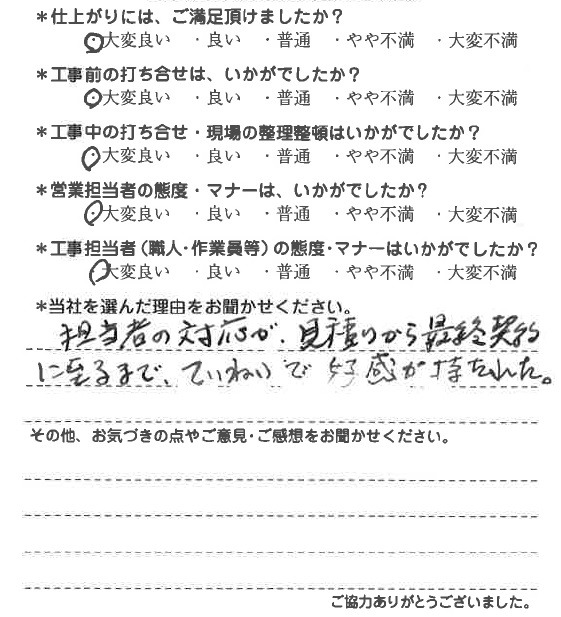 *仕上がりには、ご満足頂けましたか？
・大変良い ・良い ・普通 ・やや不満 ・大変不満
*工事前の打ち合せは、いかがでしたか？
・大変良い ・良い ・普通 ・やや不満 ・大変不満
*工事中の打ち合せ・現場の整理整頓はいかがでしたか？
・大変良い ・良い ・普通 ・やや不満 ・大変不満
*営業担当者の態度・マナーは、いかがでしたか？
・大変良い ・良い ・普通 ・やや不満 ・大変不満
*工事担当者(職人・作業員等)の態度・マナーはいかがでしたか？
・大変良い ・良い ・普通 ・やや不満 ・大変不満
*当社を選んだ理由をお聞かせください。
担当者の対応が、見積りから最終契約
に至るまで、ていねいで好感が持たれた。
その他、お気づきの点やご意見・ご感想をお聞かせください。
ご協力ありがとうございました。